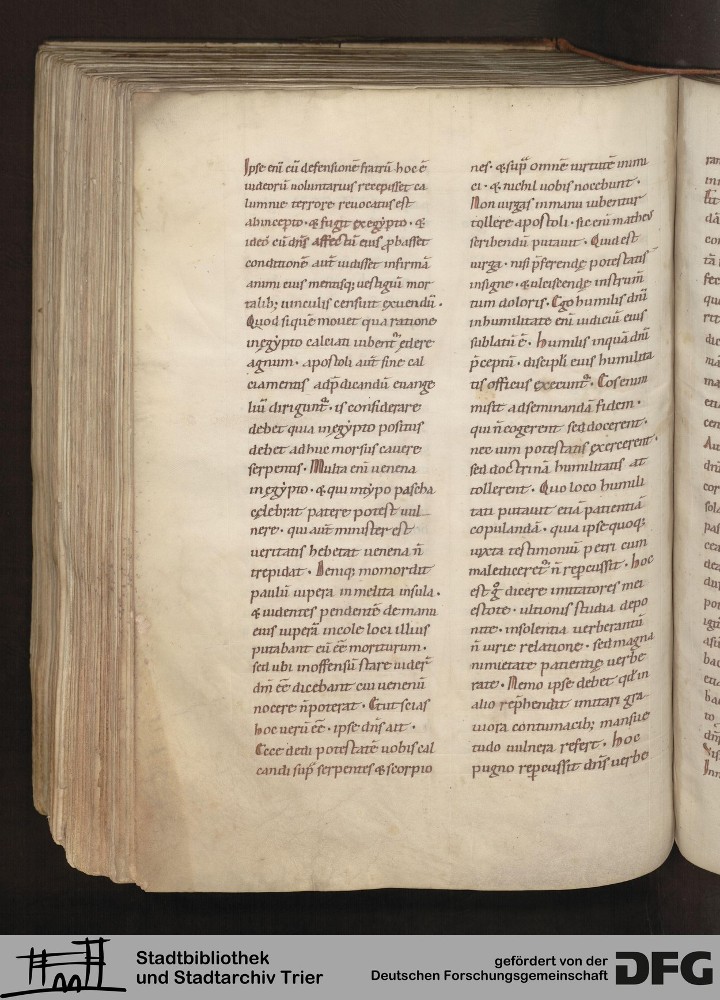 Ipse eni̅ cu̅ defensione̅ fratru̅ hoc e̅
iudeoru̅ uoluntarius recepisset ca
lumnie terrore reuocatus est
ab incepto · & fugit ex egypto · &
ideo cu̅ dn̅s affectu̅ eius ꝓbasset
conditione̅ aut̅ uidisset infirma̅
animi eius mentisq; uestigiu̅ mor
talib; uinculis censuit exuendu̅ ·
Quod siq̇ue̅ mouet qua ratione
in egypto calciati iubent᷑ edere
agnum · apostoli aut̅ sine cal
ciamentis ad p̅dicandu̅ euange
liu̅ dirigunt᷑ · is considerare
debet quia in egypto positus
debet adhuc morsus cauere
serpentis · Multa eni̅ uenena
in egypto · & qui in typo pascha
celebrat patere potest uul
nere · qui aut̅ minister est
ueritatis hebetat uenena n̅
trepidat · Deniq; momordit
paulu̅ uipera in melita insula ·
& uidentes pendente̅ de manu
eius uipera̅ incole loci illius
putabant eu̅ ee̅ moriturum ·
sed ubi inoffensu̅ stare uider᷑
dm̅ ee̅ dicebant cui uenenu̅
nocere n̅ poterat · Et ut scias
hoc ueru̅ ee̅ · ipse dn̅s ait ·
Ecce dedi potestate̅ uobis cal
candi sup̅ serpentes & scorpio
nes · & sup̅ omne̅ uirtute̅ inimi
ci · & nichil uobis nocebunt ·
Non uirgas in manu iubentur
tollere apostoli · sic eni̅ matheꝰ
scribendu̅ putauit · Quid est
uirga · nisi p̅ferende̜ potestatis
insigne · & ulciscende̜ instrum̅
tum doloris · Ego humilis dn̅i
in humilitate eni̅ iudiciu̅ eius
sublatu̅ e̅ · humilis inqua̅ dn̅i
p̅ceptu̅ · discipli eius humilita
tis officiis execunt᷑ · Eos enim
misit ad seminanda̅ fidem ·
qui n̅ cogerent sed docerent ·
nec uim potestatis exercerent ·
sed doctrina̅ humilitatis at
tollerent · Quo loco humili
tati putauit etia̅ patientia̅
copulanda̅ · quia ipse quoq;
iuxta testimoniu̅ petri cum
malediceret᷑ n̅ repcussit · hoc
est g̊ dicere imitatores mei
estote · ultionis studia depo
nite · insolentia uerberantu̅
n̅ uicie relatione · sed magna
nimitate patientie̜ uerbe
rate · Nemo ipse debet qd̅ in
alio rep̅hendit imitari gra
uiora contumacib; mansue
tudo uulnera refert · hoc
pugno repcussit dn̅s uerbe
Stadtbibliothek
und Stadtarchiv Trier
gefördert von der
Deutschen Forschungsgemeinschaft
DFG